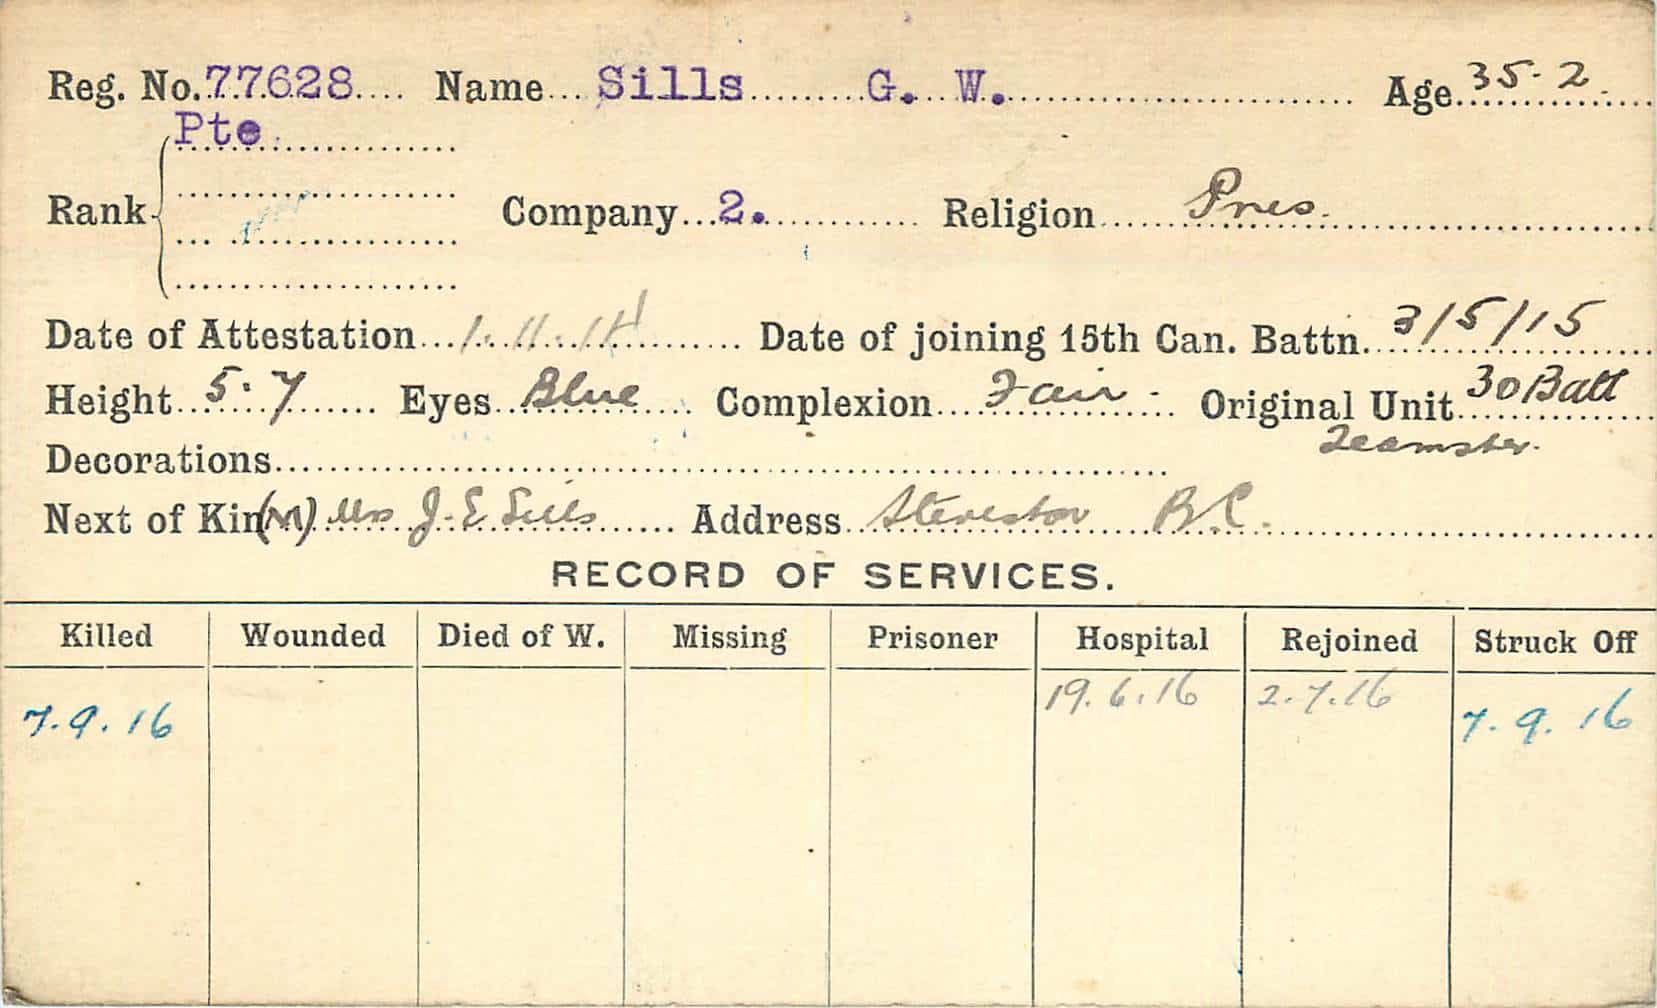 Reg. No. 77628 Name Sills G. W. Age 35-2
Pte
Rank Company 2. Religion Pres.
Date of Attestation 1.11.14 Date of joining 15th Can. Battn. 3/5/15
Height 5.7 Eyes Blue Complexion Fair Original Unit 30 Batt
Teamster.
Decorations
Next of Kin (M) Mrs J. E Sills Address Steveston B.C.
RECORD OF SERVICES.
Killed Wounded Died of W. Missing Prisoner Hospital Rejoined Struck Off
19.6.16 2.7.16
7.9.16 7.9.16